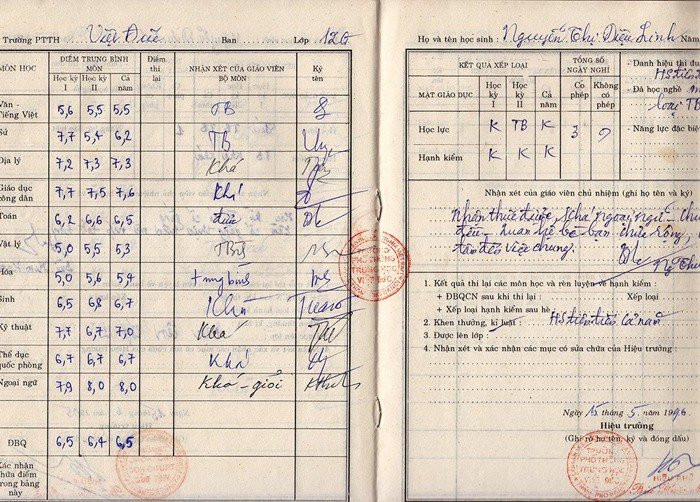 Trường PTTH Việt Đức Ban Lớp 12G
MÔN HỌC
ĐIỂM TRUNG BÌNH MÔN
Học kỳ I
Học kỳ II
Cả năm
Điểm thi lại
NHẬN XÉT CỦA GIÁO VIÊN BỘ MÔN
Ký tên
Văn - Tiếng Việt 5,6 5,5 5,5 TB
Sử 7,7 5,4 6,2 TB
Địa lý 7,2 7,3 7,3 Khá
Giáo dục công dân 7,7 7,5 7,6 Khá
Toán 6,2 6,6 6,5
Vật lý 5,0 5,5 5,3
Hóa 5,0 5,6 5,4
Sinh 6,5 6,8 6,7 Khá
Kỹ thuật 7,7 6,7 7,0 Khá
Thể dục quốc phòng 6,7 6,7 6,7 Khá
Ngoại ngữ 7,9 8,0 8,0 Khá - giỏi
ĐBQ 6,5 6,4 6,5
Xác nhận
chữa điểm
trong bảng
này
Họ và tên học sinh: Nguyễn Thị Diệu Linh Năm
KẾT QUẢ XẾP LOẠI
TỔNG SỐ NGÀY NGHỈ
MẶT GIÁO DỤC
Học kỳ I
Học kỳ II
Cả năm
Có phép
Không có phép
Học lực K TB K 3
Hạnh kiểm K K K
- Danh hiệu thi đu
- Đã học nghề
loại TB
- Năng lực đặc biệt
Nhận xét của giáo viên chủ nhiệm (ghi họ tên và ký)
Nhận thức được, khá ngoại ngữ -
đều - quan hệ bè bạn rộng,
việc chung.
1. Kết quả thi lại các môn học và rèn luyện về hạnh kiểm:
+ ĐBQCN sau khi thi lại: Xếp loại
+ Xếp loại hạnh kiểm sau hè:
2. Khen thưởng, kỉ luật: HS tiên tiến cả năm
3. Được lên lớp:
4. Nhận xét và xác nhận các mục có sửa chữa của Hiệu trưởng:
Ngày 15 tháng 5 năm 1996
Hiệu trưởng
(Ghi rõ họ tên, ký và đóng dấu)